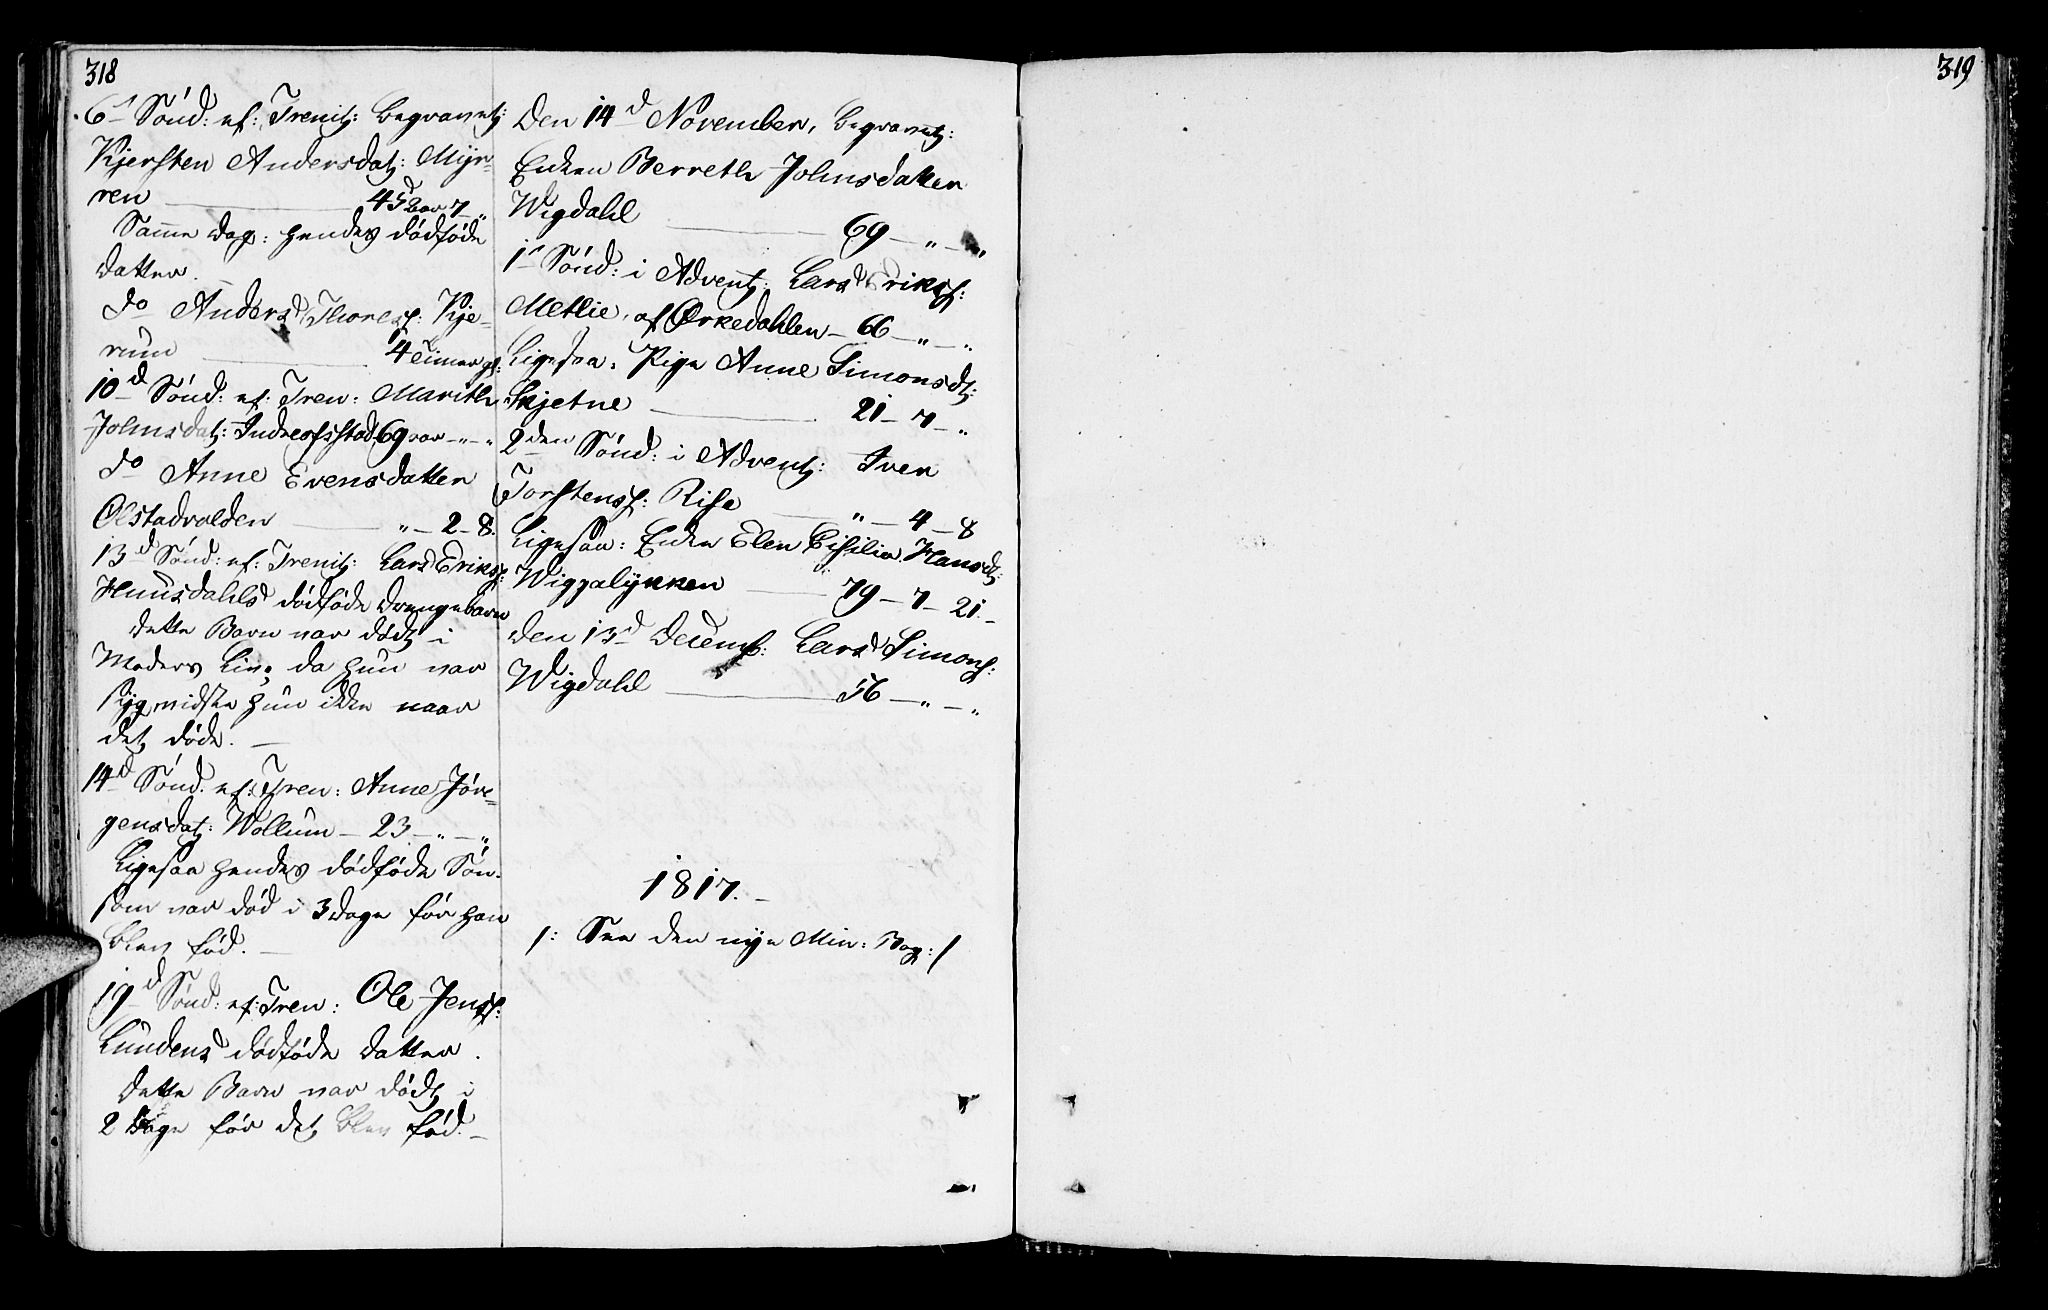 318
6te Sönd: ef: Trenit: begravet:
Kjersten Andersdat: Myr-
ren — 45 aar 7 - „
Samme Dag: hendes dödföde
datter.
do Anders Thoresf: Kje-
rum — 4 Timer gl:
10d Sönd: ef: Tren: Marith
Johnsdat: 69 aar - „ - „
do Anne Evensdatter
Olstadvolden — „ - 2 - 8.
13d Sönd: ef: Trenit: Lars Eriksf:
Huusdahls dödföde Drengebarn
dette Barn var dödt i
Moders Liv; da hun var
syg, vidste hun ikke naar
det döde. —
14d Sönd. ef: Tren: Anne Jör-
gensdat: Wollum — 23 - „ - „
Ligesaa hendes dödföde Sön-
som var död i 3 dage för han
blev föd. —
19d Sönd: ef: Tren: Ole Jensf:
Lundens dödföde datter.
dette Barn var dödt i
2 Dage för det blev föd. —
Den 14d November, begravet:
Enken Berreth Johnsdatter
Wigdahl — 69 - „ - „
1s Sönd: i Advent: Lars Eriksf:
Metlie, af Orkedahlen — 66 - „ - „
Ligesaa: Pige Anne Simonsdt:
Skjetne — 21 - 7 - „
2den Sönd: i Advent: Iver
Torstensf: Rise — „ - 4 - 8
Ligesaa: Enke Elen Cisilia Hansdt:
Wiggalykken — 79 - 7 - 21. -
den 13d Decemb: Lars Simonsf:
Wigdahl — 56 - „ - „
1817. —
/: See den nye Min: Bog: /
319